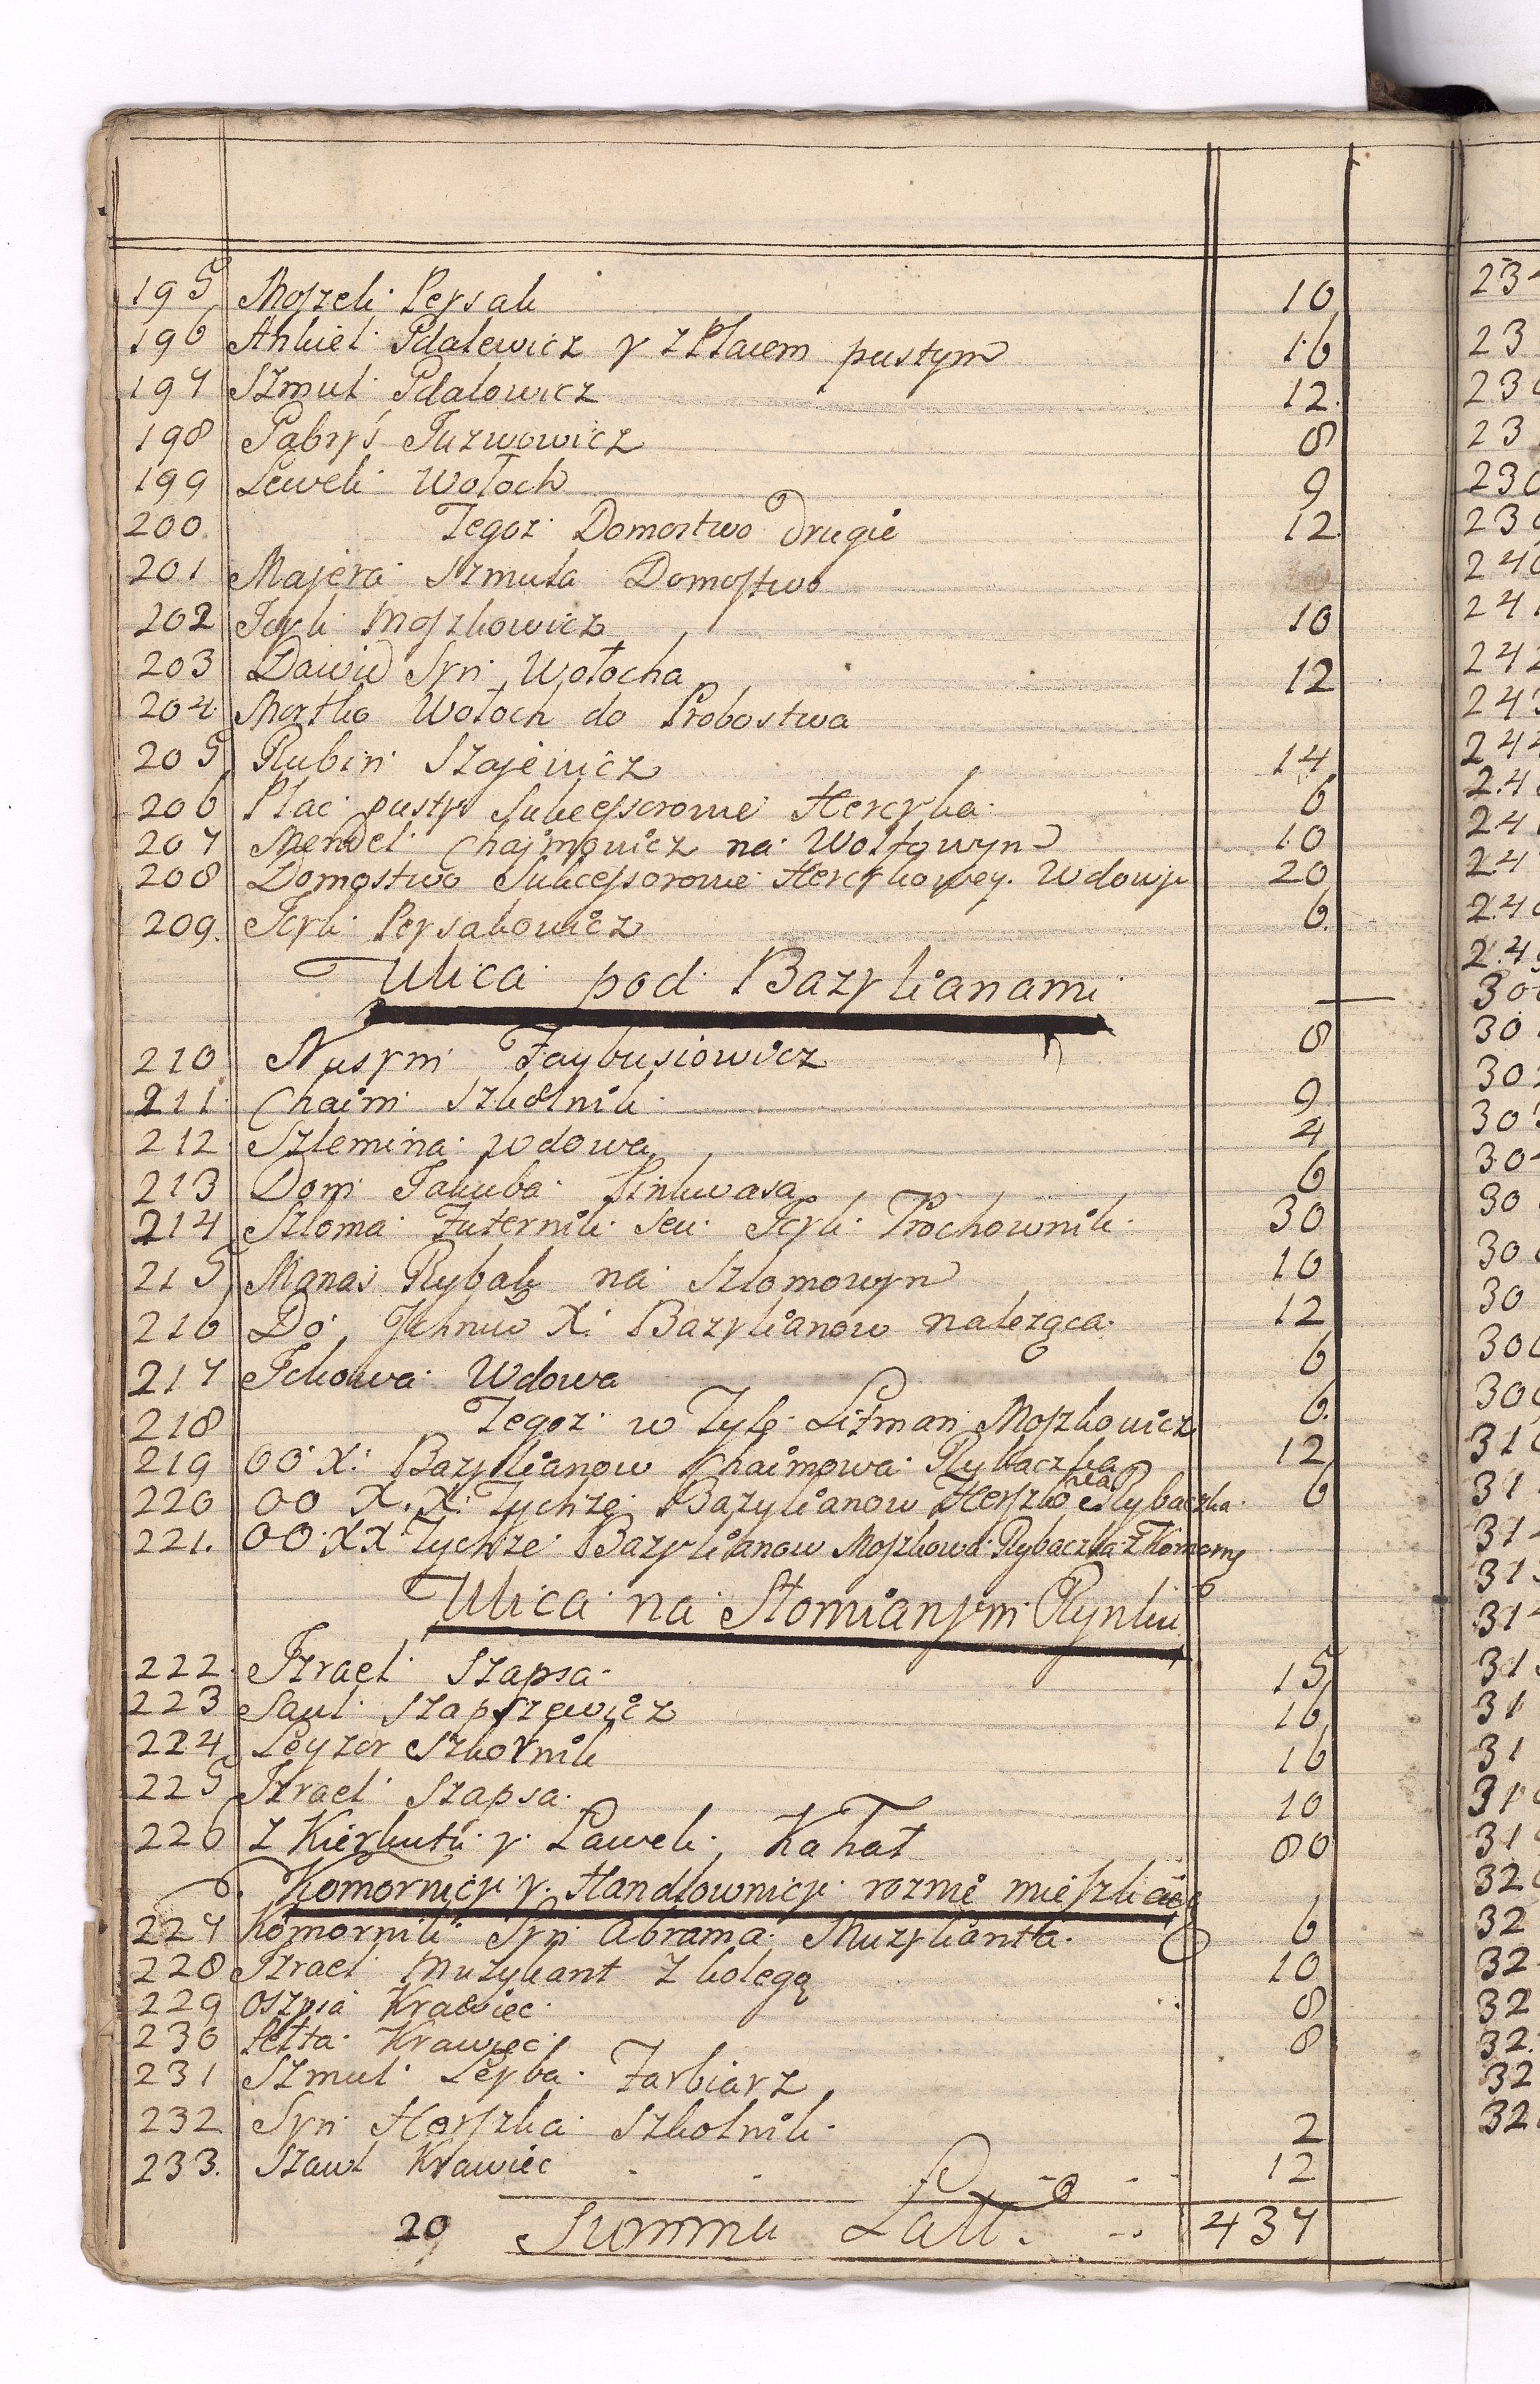 195 Moszek Peysak 10
196 Ankiel Pdalewicz y z Placem pustym 16
197 Szmul Pdalowicz 12.
198 Gabryś Juzwowicz 8
199 Lewek Wołoch 9
200 Tegoz Domostwo Drugie 12
201 Majera Szmula Domostwo
202 Icyk Moszkowicz 10
203 Dawid Syn Wołocha 12
204. Mortko Wołoch do Probostwa
205 Rubin Szajewicz 14
206 Plac pusty Sukcessorowie Hercyka 6
207 Mendel Chajmowicz na Wolfowym 10
208 Domostwo Sukcessorowie Hercykowey Wdowy 20
209. Icyk Peysakowicz 6.
Ulica pod Bazylianami
210 Nusym Faybusiowicz 8
211 Chaim Szkolnik 9
212 Szlemina wdowa 4
213 Dom Jakuba Pinkwasa 6
214 Szloma Futernik seu Icyk Prochownik 30
215 Manas Rybak na Szlomowym 10
216 Do X: Bazylianow naleząca 12
217 Ickowa Wdowa 6
218 Tegoz w Tyle Litman Moszkowicz 6.
219 OO X: Bazylianow Chaimowa Rybaczka 12
220 OO X. X: Tychze Bazylianow Herszkowa Rybaczka 6
221. OO XX Tychze Bazylianow Moszkowa Rybaczka z Komorną
6
Ulica na Słomianym Rynku
222. Izrael Szapsa 15
223 Saul Szapszewicz 16
224 Leyzor Szkolnik 16
225 Izrael Szapsa 10
226 Z Kierkutu y Ławek Kahał 80
Komornicy y Handlownicy roznie mieszkaią
227 Komornik Syn Abrama Muzykanta 6
228 Izrael Muzykant z kolegą 10
229 Krawiec 8
230 Krawiec 8
231 Szmul Leyba Farbiarz
232 Syn Herszka Szkolnik 2
233. Szawl Krawiec 12
29 Summa Latt. 437